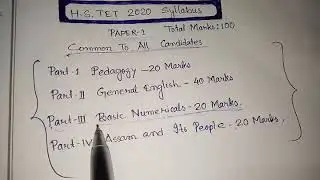 H.S.TET 2020 Syllabus
PAPER-1 Total Marks:100
Common To All Candidates
Part-I Pedagogy-20 Marks
Part-II General English-40 Marks
Part-III Basic Numericals-20 Marks.
Part-IV Assam and Its People-20 Marks,